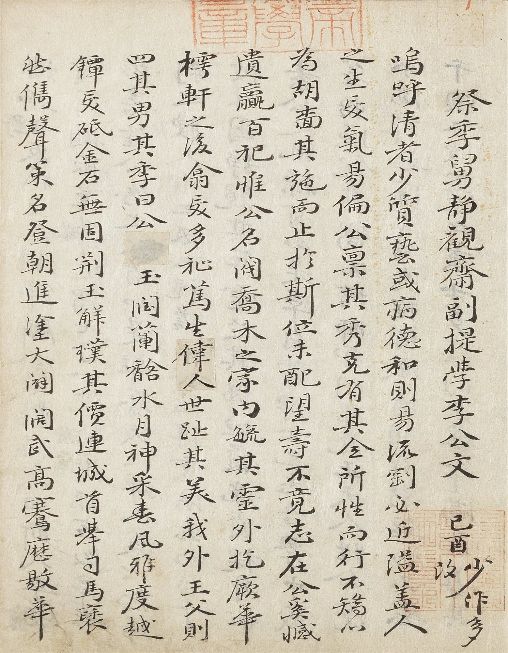 祭季舅靜觀齋副提學李公文 己酉 少作多改
嗚呼清者少質藝或病德和則易流劉必近隘盖人
之生受氣易偏公禀其秀克有其全所性而行不矯以
為胡嗇其施而止於斯位未配望壽不竟志在公奚憾
遺羸百祀惟公名閥喬木之家內毓其靈外挖厥華
樗軒之後翕受多祉篤生偉人世趾其美我外王父則
四其男其季曰公 玉潤蘭馠水月神采春風雅度越
鐔受砥金石無固荆玉解璞其價連城首舉司馬褎
然儁聲策名登朝進塗大闢闊武高騫歷敭華